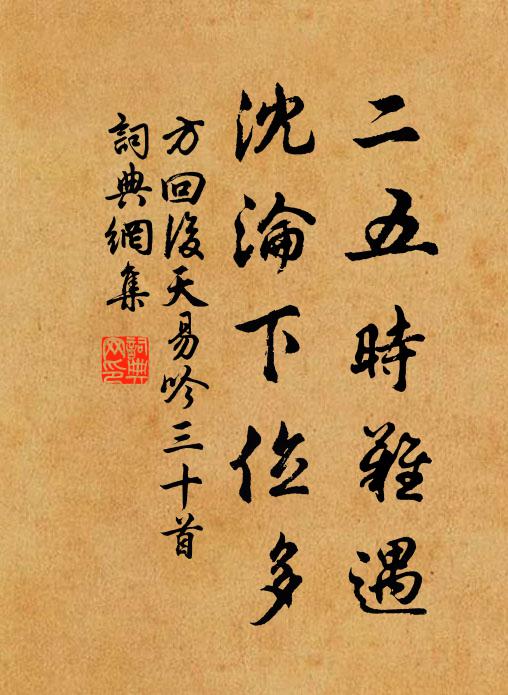 二五時難遇
沈淪下位多
方回後天易吟三十首
詞典網集
詞典網印